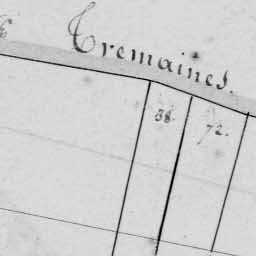 Tremaines.
38.
72.